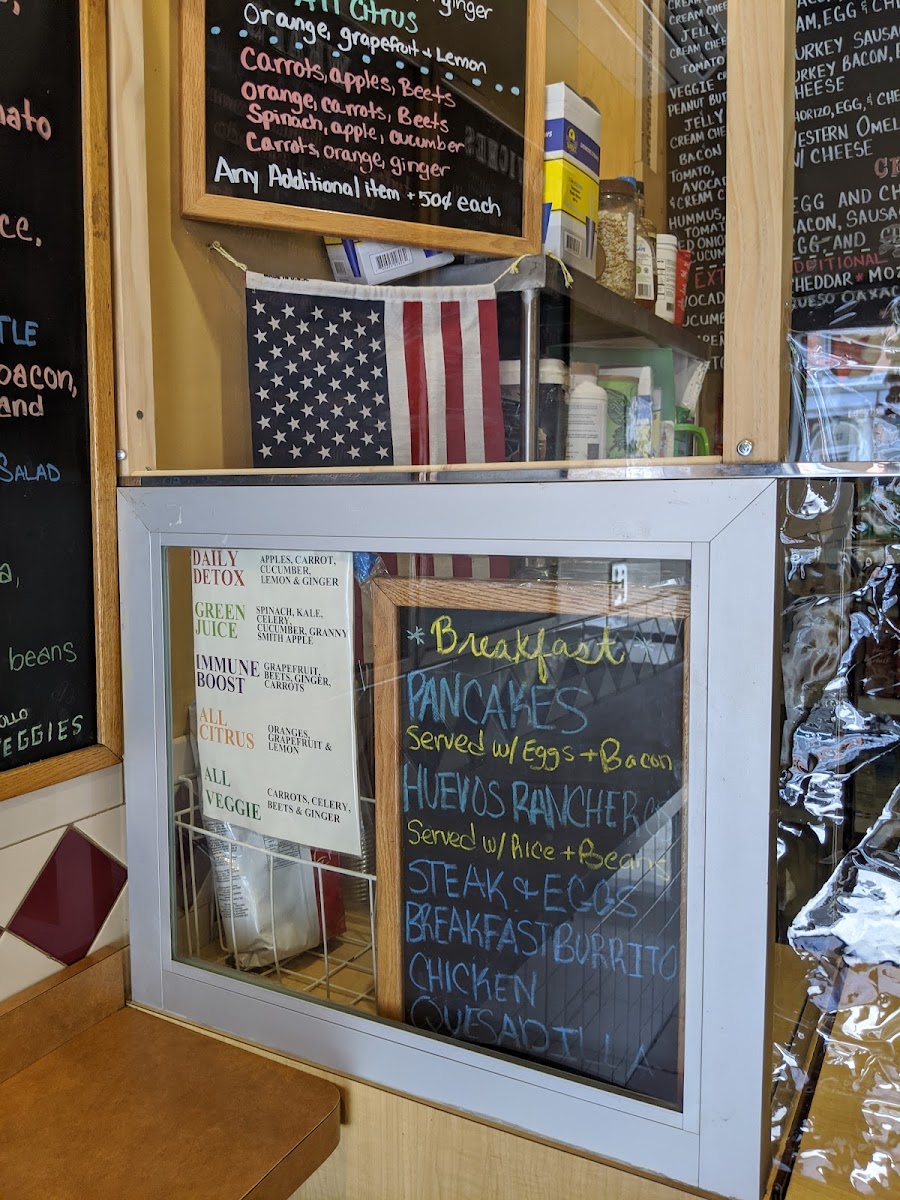 nato
TLE
bacon,
and
SALAD
beans
VEGGIES
ginger
All Citrus
Orange, grapefruit + Lemon
Carrots, apples, Beets
orange, carrots, Beets
Spinach, apple, cucumber
Carrots, orange, ginger
Any Additional item + 50¢ each
CREAM CHEE
JELLY,
CREAM CHEE
TOMATO
VEGGIE
PEANUT BUT
JELLY
CREAM CHE
BACON
TOMATO,
AVOCAD
& CREAM
HUMMUS,
TOMATO
RED ONION
CUCUM
EXT
AVOCAD
CUCUM
AM, EGG & CH
TURKEY SAUSA
TURKEY BACON,
CHEESE
CHORIZO, EGG, & CHE
WESTERN OMEL
W/ CHEESE
EGG AND CH
BACON, SAUSA
EGG AND C
ADDITIONAL
CHEDDAR * MOZ
QUESO OAXAC
DAILY DETOX
APPLES, CARROT,
CUCUMBER,
LEMON & GINGER
GREEN JUICE
SPINACH, KALE,
CELERY,
CUCUMBER, GRANNY
SMITH APPLE
IMMUNE BOOST
GRAPEFRUIT,
BEETS, GINGER,
CARROTS
ALL CITRUS
ORANGES,
GRAPEFRUIT &
LEMON
ALL VEGGIE
CARROTS, CELERY,
BEETS & GINGER
* Breakfast *
PANCAKES
Served w/ Eggs + Bacon
HUEVOS RANCHEROS
Served w/ Rice + Beans
STEAK & EGGS
BREAKFAST BURRITO
CHICKEN
QUESADILLA